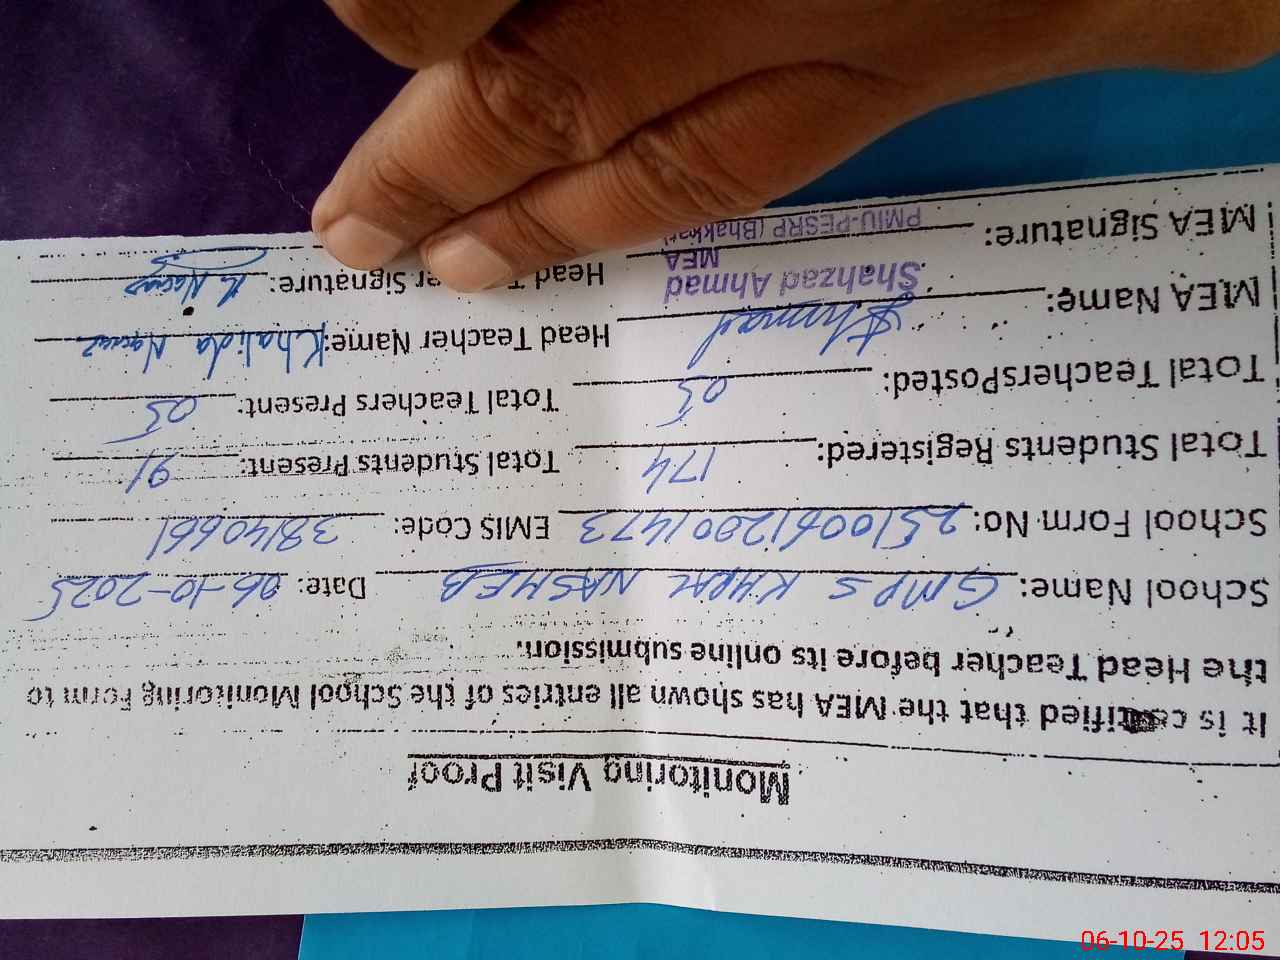 Monitoring Visit Proof
It is certified that the MEA has shown all entries of the School Monitoring Form to
the Head Teacher before its online submission.
School Name: GMPS KHRAL NASHEB Date: 06-10-2025
School Form No: 25100612001473 EMIS Code: 38140661
Total Students Registered: 174 Total Students Present: 91
Total TeachersPosted: 05 Total Teachers Present: 05
MEA Name: Ahmad Head Teacher Name: Khalida
Shahzad Ahmad
MEA
MEA Signature: PMIU-PESRP (Bhakkar) Head Signature:
06-10-25 12:05